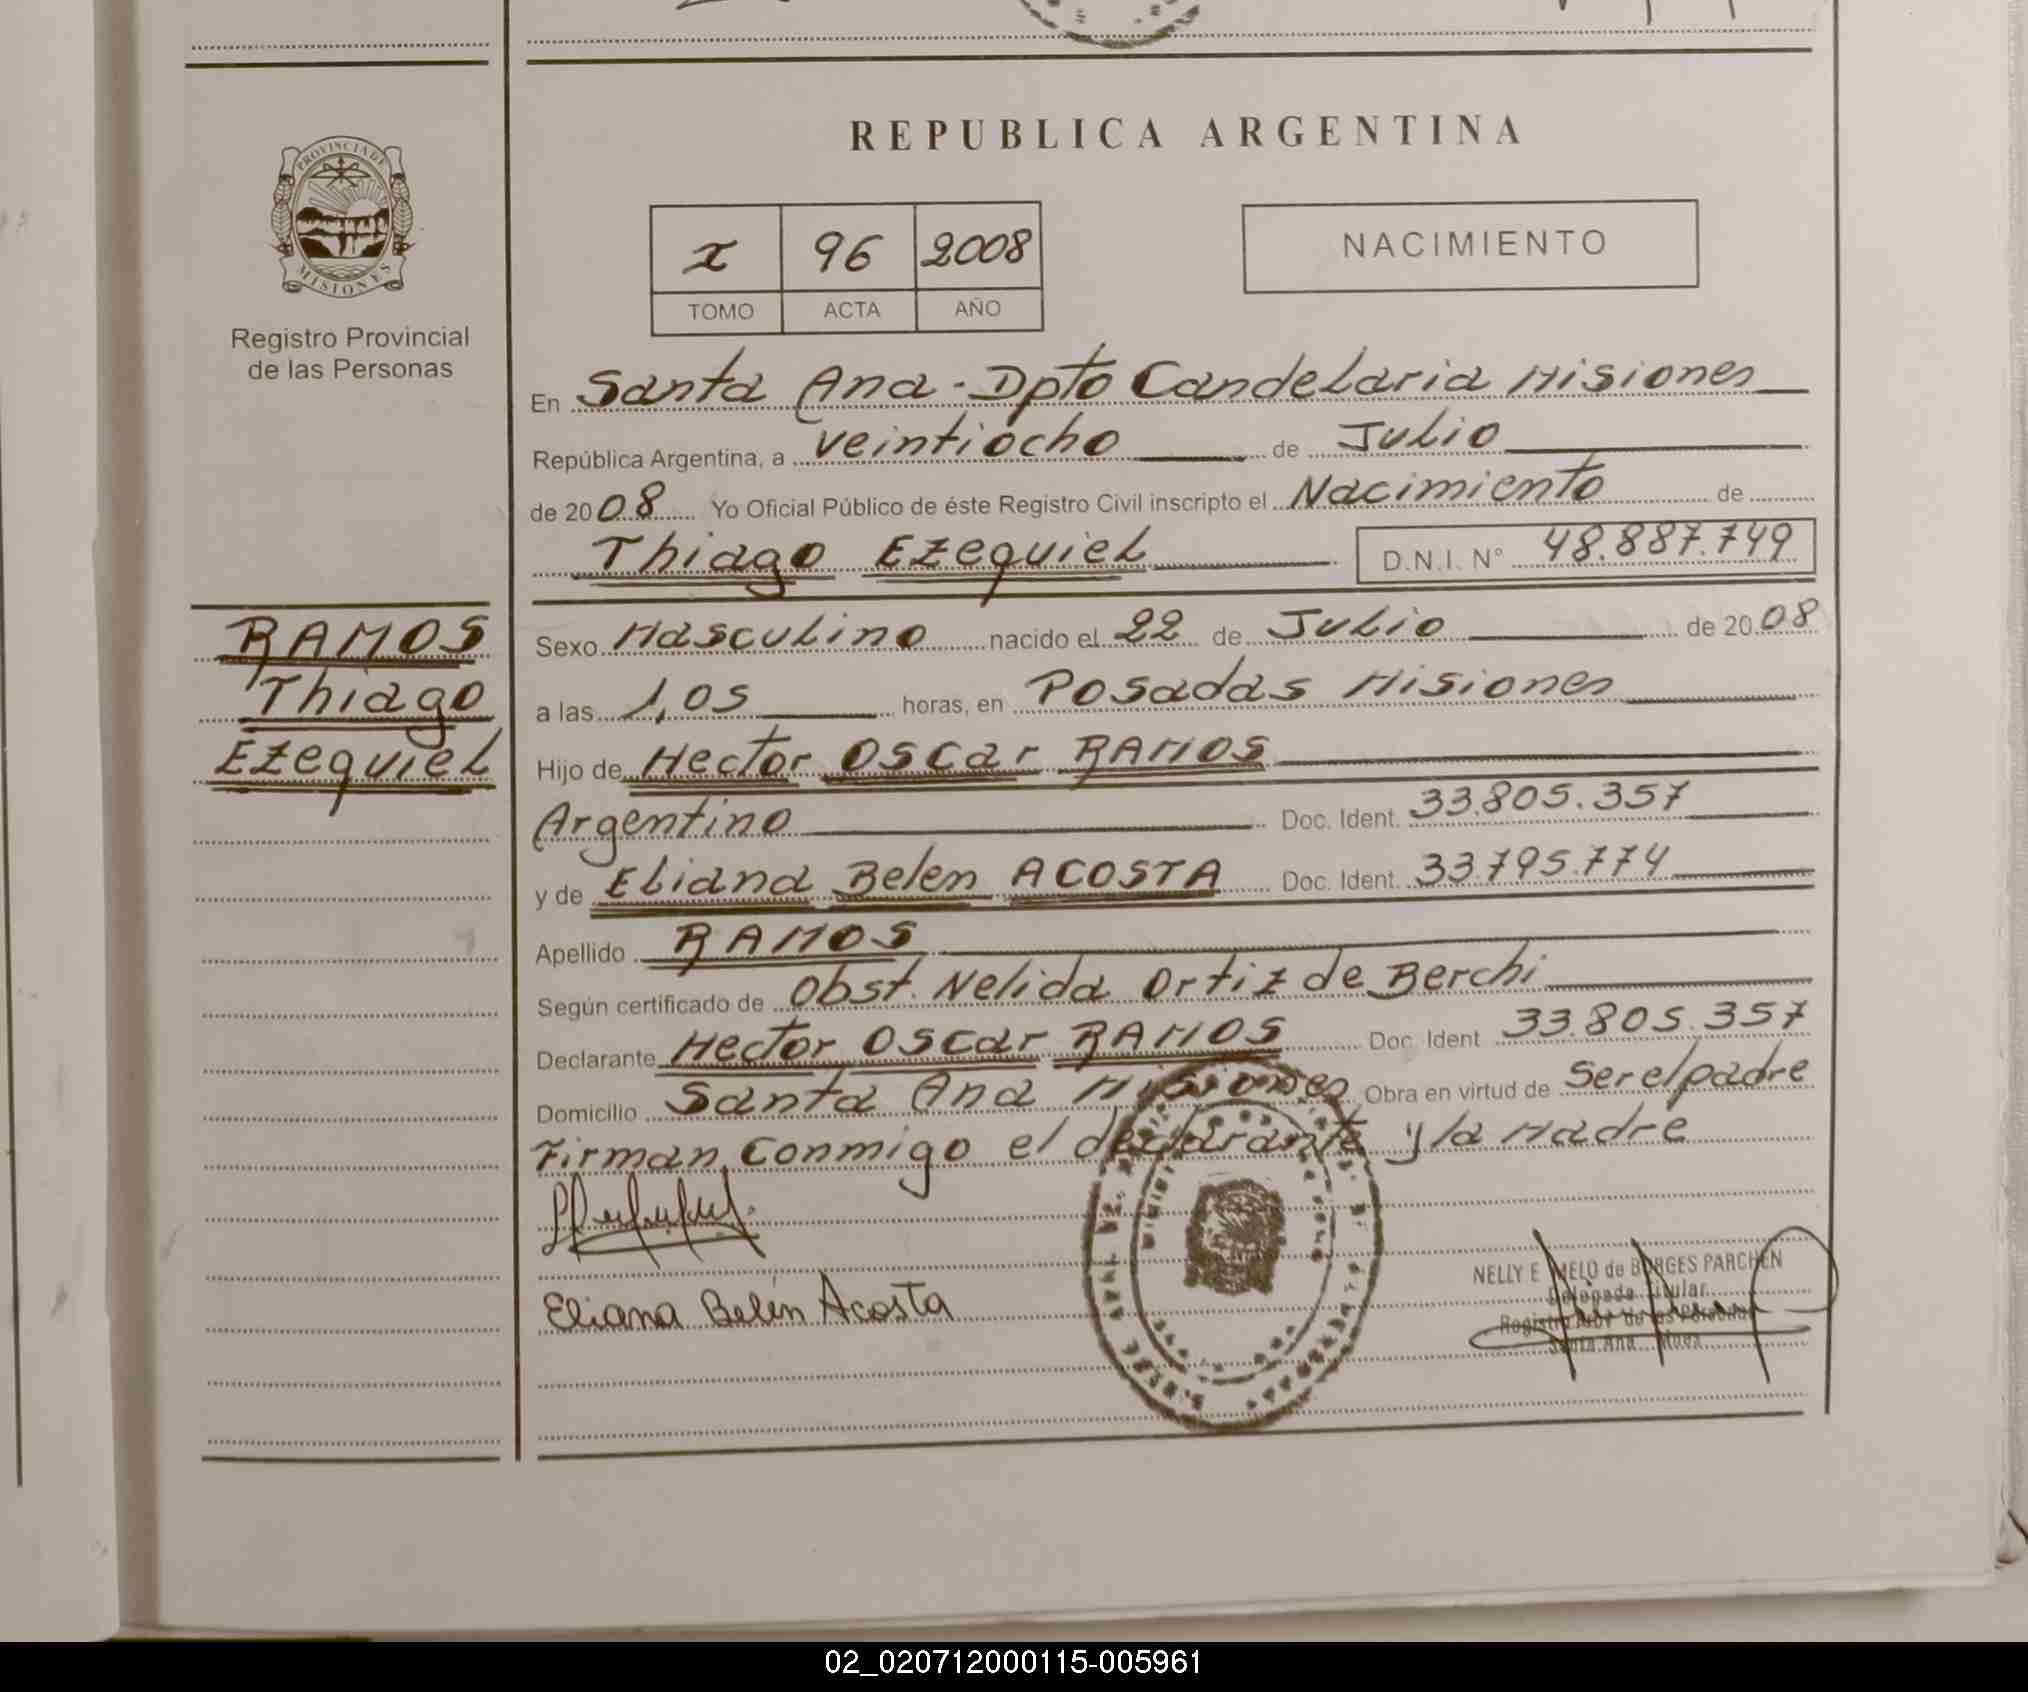 REPUBLICA ARGENTINA
PROVINCIA DE
MISIONES
Registro Provincial
de las Personas
x 96 2008
TOMO ACTA AÑO
NACIMIENTO
En Santa Ana - Dpto Candelaria Misiones
República Argentina, a veintiocho de Julio
de 2008 Yo Oficial Público de éste Registro Civil inscripto el Nacimiento de
Thiago Ezequiel D.N.I. N° 48.887.749
RAMOS
Thiago
Ezequiel
Sexo Masculino nacido el 22 de Julio de 2008
a las 1,05 horas, en Posadas Misiones
Hijo de Hector Oscar RAMOS
Argentino Doc. Ident. 33.805.357
y de Eliana Belen ACOSTA Doc. Ident. 33.795.774
Apellido RAMOS
Según certificado de Obst. Nelida Ortiz de Berchi
Declarante Hector Oscar RAMOS Doc. Ident 33.805.357
Domicilio Santa Ana Misiones Obra en virtud de Ser el padre
Firman Conmigo el declarante y la Madre
Eliana Belén Acosta
NELLY E MELO de BORGES PARCHEN
Delegada Titular
Registro Prov de las Personas
Santa Ana Mnes
02_020712000115-005961